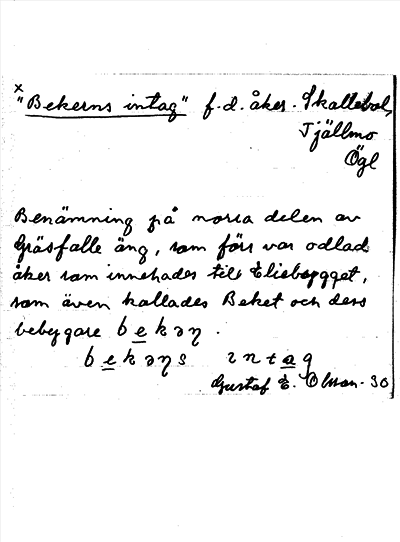 x
"Bekerns intag" f.d. åker. Skallebol,
Tjällmo
Ögl
Benämning på norra delen av
Gräsfalle äng, som förr var odlad
åker som innehades till Eliebygget,
som även kallades Beket och dess
bebyggare bekəŋ.
bekəŋs ıntag
Gustaf E. Olsson - 30